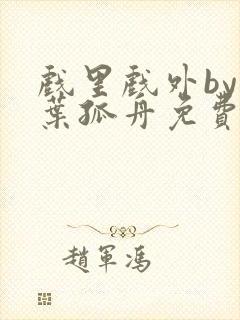 戲里戲外by
葉孤舟免費
趙軍馮